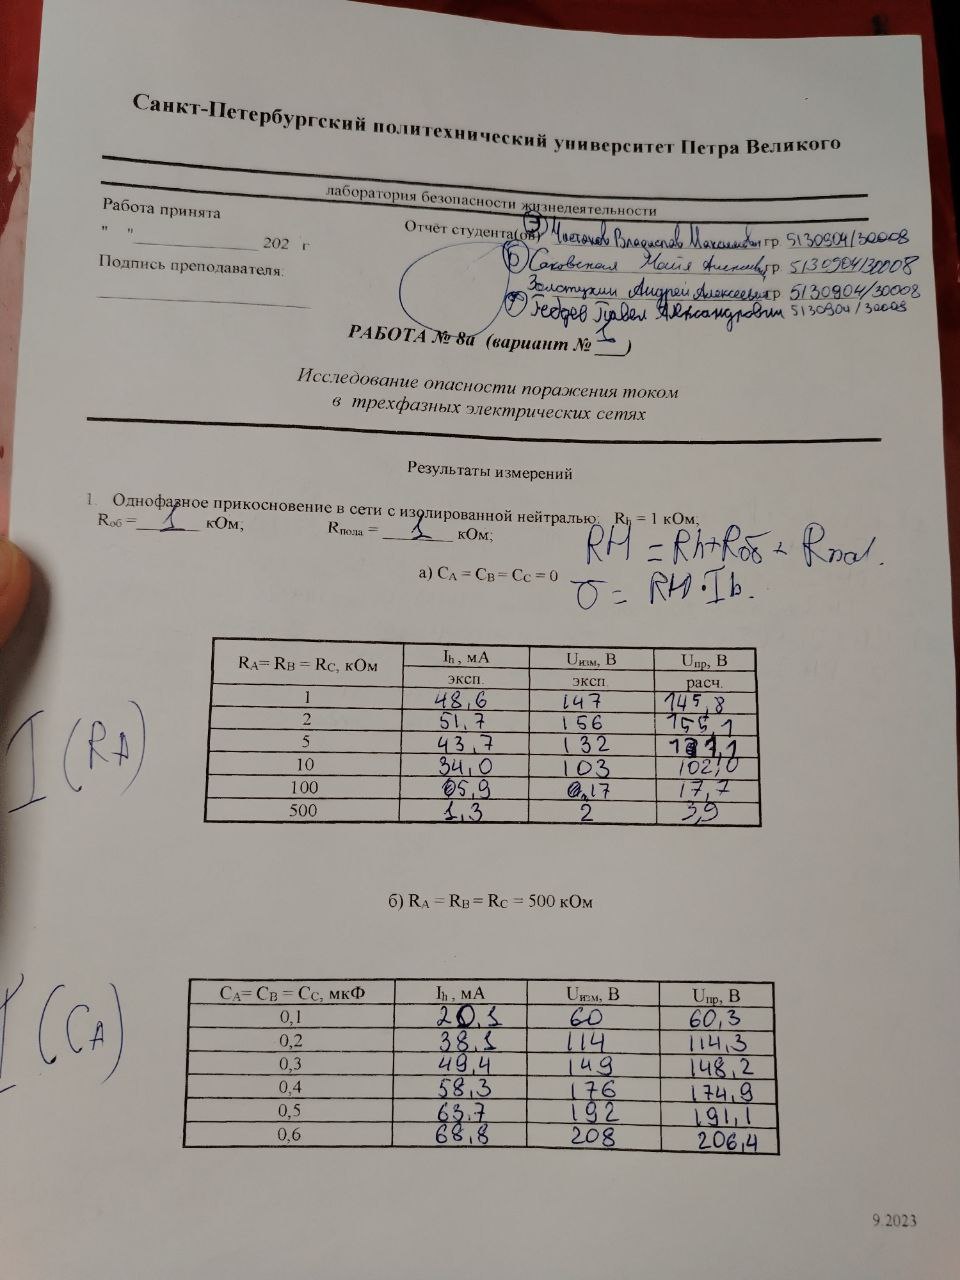 Санкт-Петербургский политехнический университет Петра Великого
лаборатория безопасности жизнедеятельности
Работа принята
" "____________ 202 г
Подпись преподавателя:
Отчёт студента(ов)
Владислав Максимович гр. 5130904/30008
Саковская Майя гр. 5130904/30008
Золотухин Андрей Алексеевич гр 5130904/30008
Павел Александрович 5130904/30003
РАБОТА № 8а (вариант № 1)
Исследование опасности поражения током
в трехфазных электрических сетях
Результаты измерений
1. Однофазное прикосновение в сети с изолированной нейтралью; Rh = 1 кОм;
Rоб = 1 кОм; Rпола = 1 кОм;
RH = Rh + Rоб + Rпол.
а) CA = CB = CC = 0
U = RH · Ih.
RA= RB = RC, кОм Ih , мА Uизм, В Uпр, В
эксп. эксп. расч.
1 48,6 147 145,8
2 51,7 156 155,1
5 43,7 132 131,1
10 34,0 103 102,0
100 5,9 17 17,7
500 1,3 2 3,9
I (RA)
б) RA = RB = RC = 500 кОм
CA= CB = CC, мкФ Ih , мА Uизм, В Uпр, В
0,1 20,1 60 60,3
0,2 38,1 114 114,3
0,3 49,4 149 148,2
0,4 58,3 176 174,9
0,5 63,7 192 191,1
0,6 68,8 208 206,4
I (CA)
9.2023